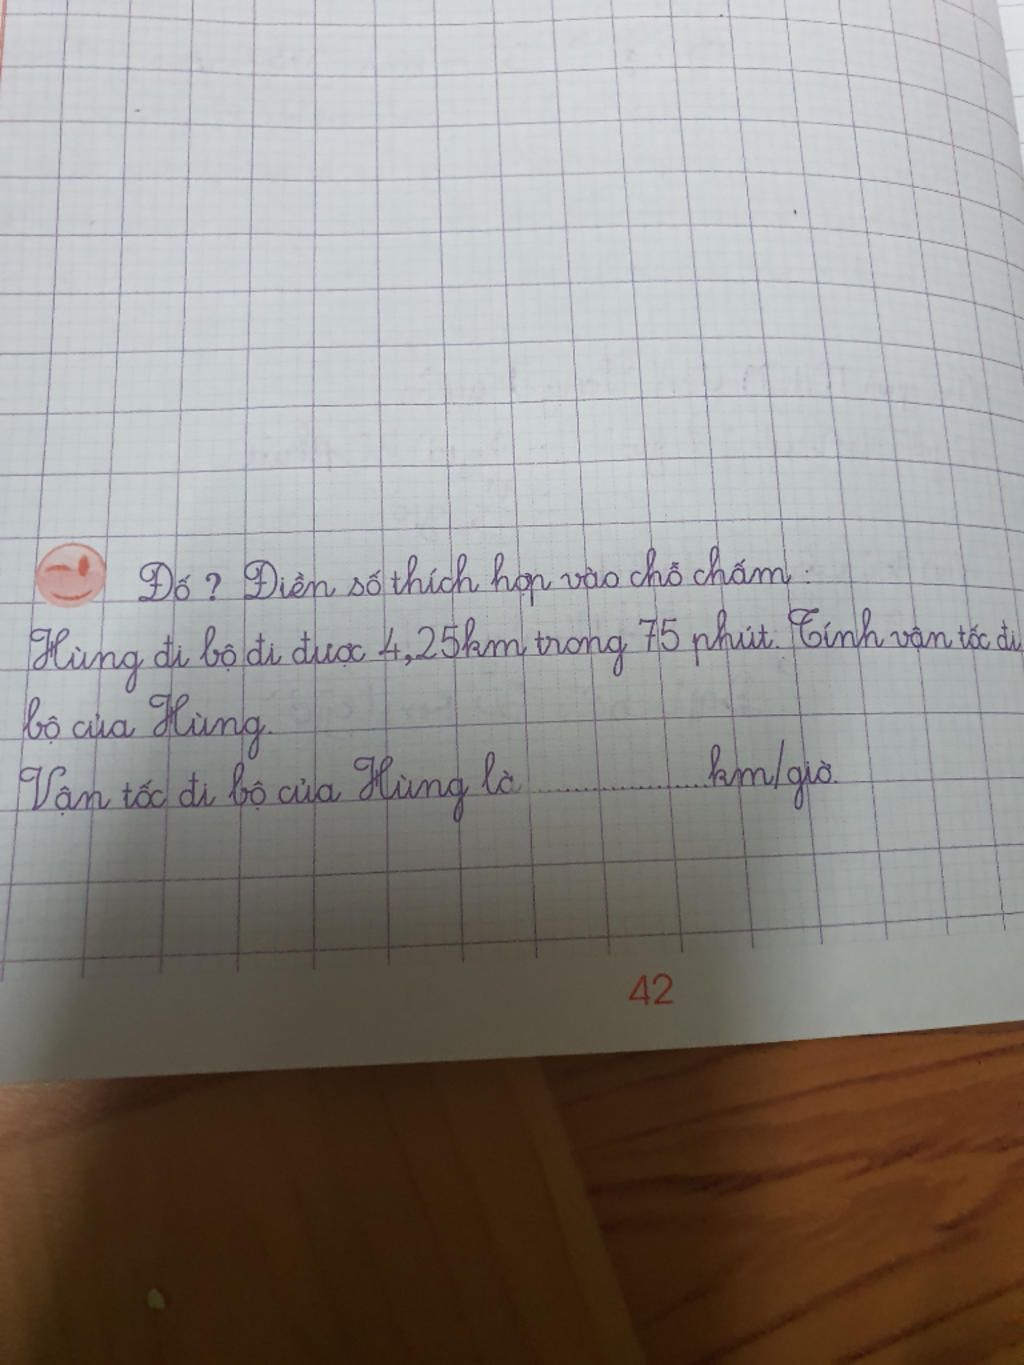 Đố? Điền số thích hợp vào chỗ chấm:
Hùng đi bộ đi được 4,25km trong 75 phút. Tính vận tốc đi
bộ của Hùng.
Vận tốc đi bộ của Hùng là ................ km/giờ.
42